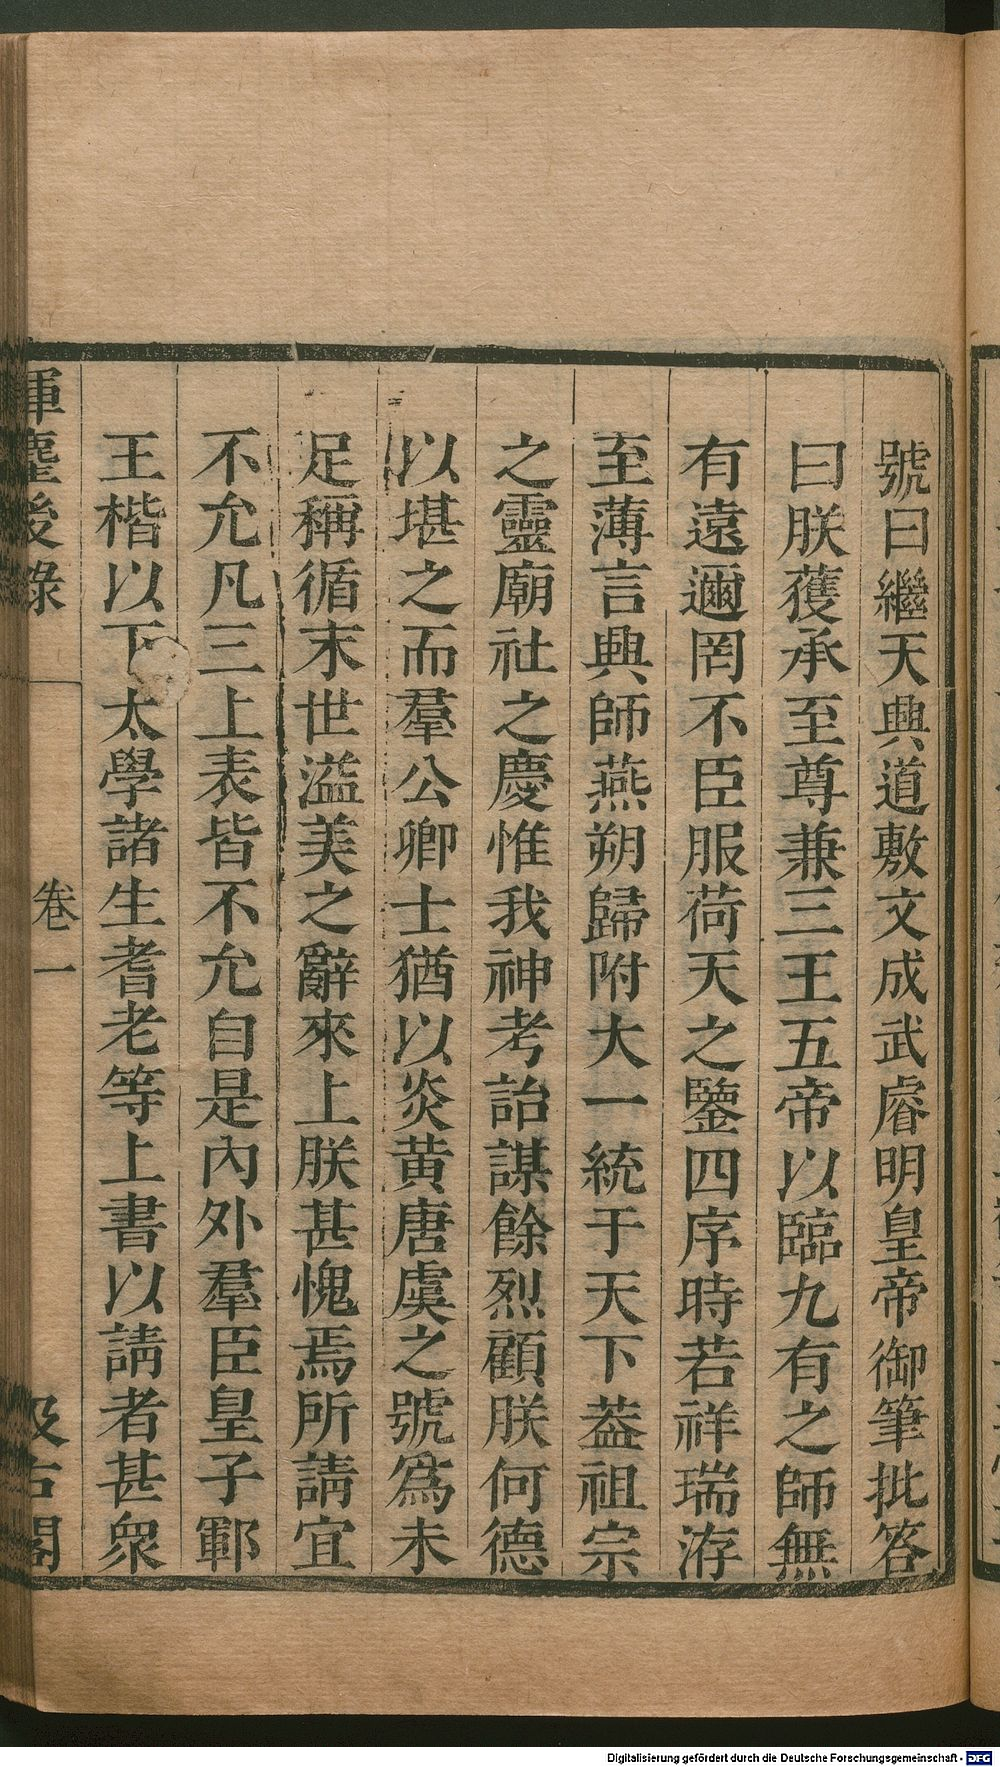 號曰繼天興道敷文成武睿明皇帝御筆批答
曰朕獲承至尊兼三王五帝以臨九有之師無
有遠邇罔不臣服荷天之鑒四序時若祥瑞洊
至薄言興師燕朔歸附大一統于天下葢祖宗
之靈廟社之慶惟我神考詒謀餘烈顧朕何德
以堪之而羣公卿士猶以炎黄唐虞之號爲未
足稱循末世溢美之辭來上朕甚愧焉所請宜
不允凡三上表皆不允自是內外羣臣皇子鄆
王楷以下太學諸生耆老等上書以請者甚衆
揮麈後錄
卷一
汲古閣
Digitalisierung gefördert durch die Deutsche Forschungsgemeinschaft - DFG